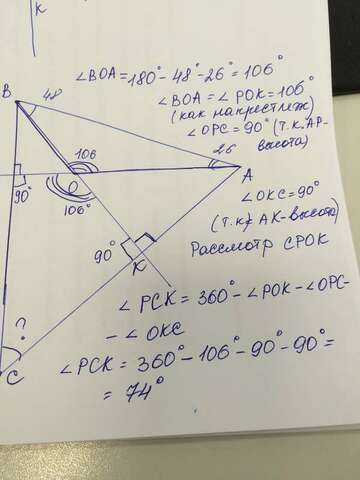 к
∠BOA=180°-48°-26°=106°
∠BOA=∠POK=106°
(как накрестлеж)
∠OPC=90° (т.к. AP-
высота)
B
48
106
26
A
90°
O
106°
∠OKC=90°
(т.к AK-высота)
Рассмотр CPOK
90°
K
∠PCK=360°-∠POK-∠OPC-
-∠OKC
?
C
∠PCK=360°-106°-90°-90°=
=74°